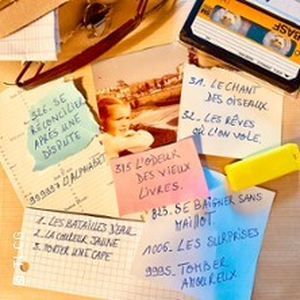 BASF
31. LE CHANT
DES OISEAUX.
32. LES RÊVES
OÙ L'ON VOLE.
326. SE
RÉCONCILIER
APRÈS UNE
DISPUTE
99997 L'ALPHABET
315 L'ODEUR
DES VIEUX
LIVRES.
823. SE BAIGNER SANS
MAILLOT.
1006. LES SURPRISES
9995. TOMBER
AMOUREUX
1. LES BATAILLES D'EAU.
2. LA COULEUR JAUNE
3. PORTER UNE CAPE